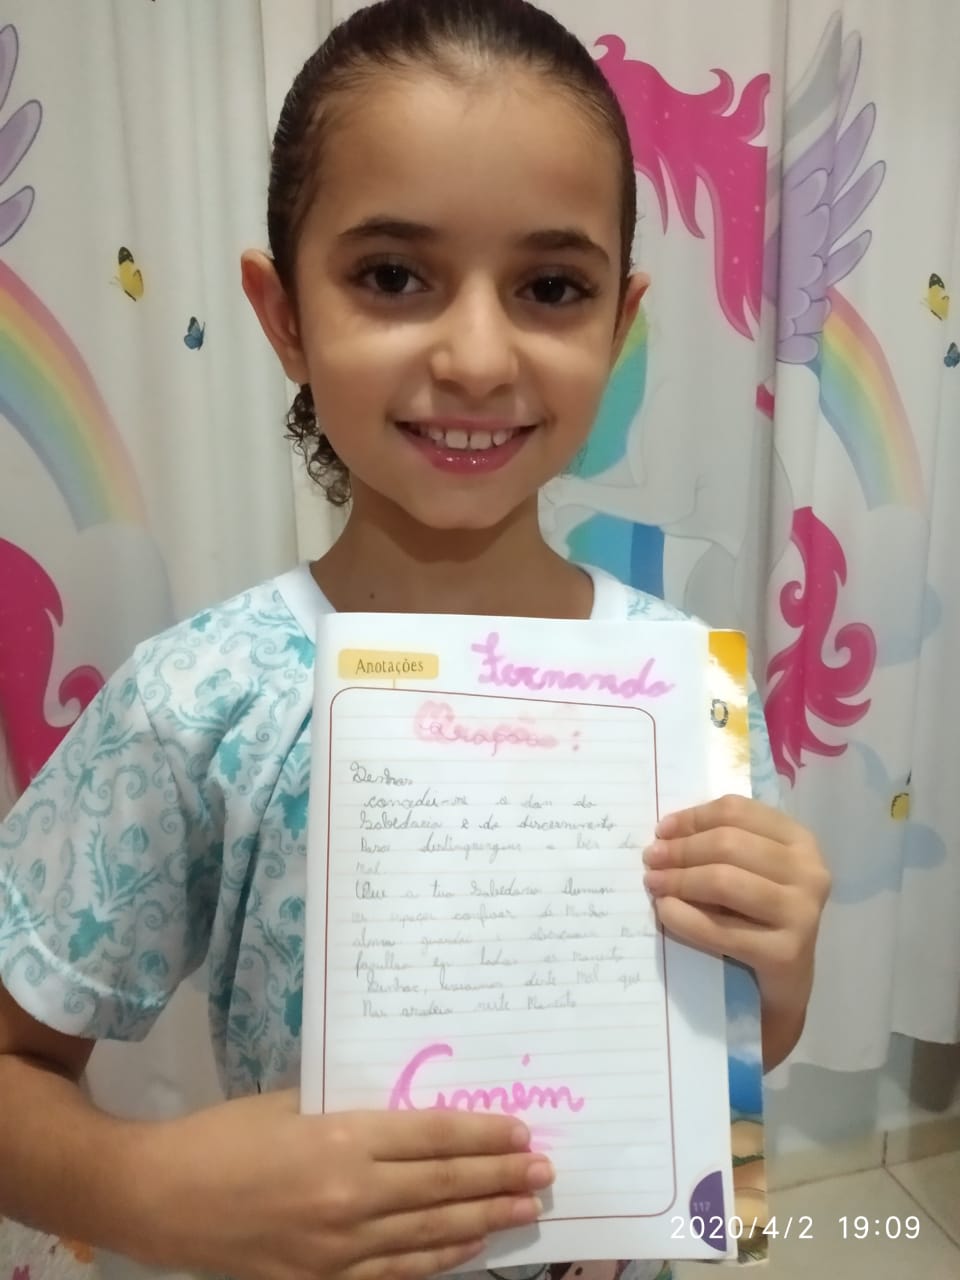 Anotações
Fernanda
Oração:
Senhor
concedei-me o dom da
Sabedoria e do discernimento
Para destinguirgue o bem do
mal.
Que a tua Sabedoria ilumine
os espaços confusos da minha
alma guardai e abençoai minha
família em todos os momento
Senhor, livrainos deste mal que
nos neste momento
Amém
117
2020/4/2 19:09